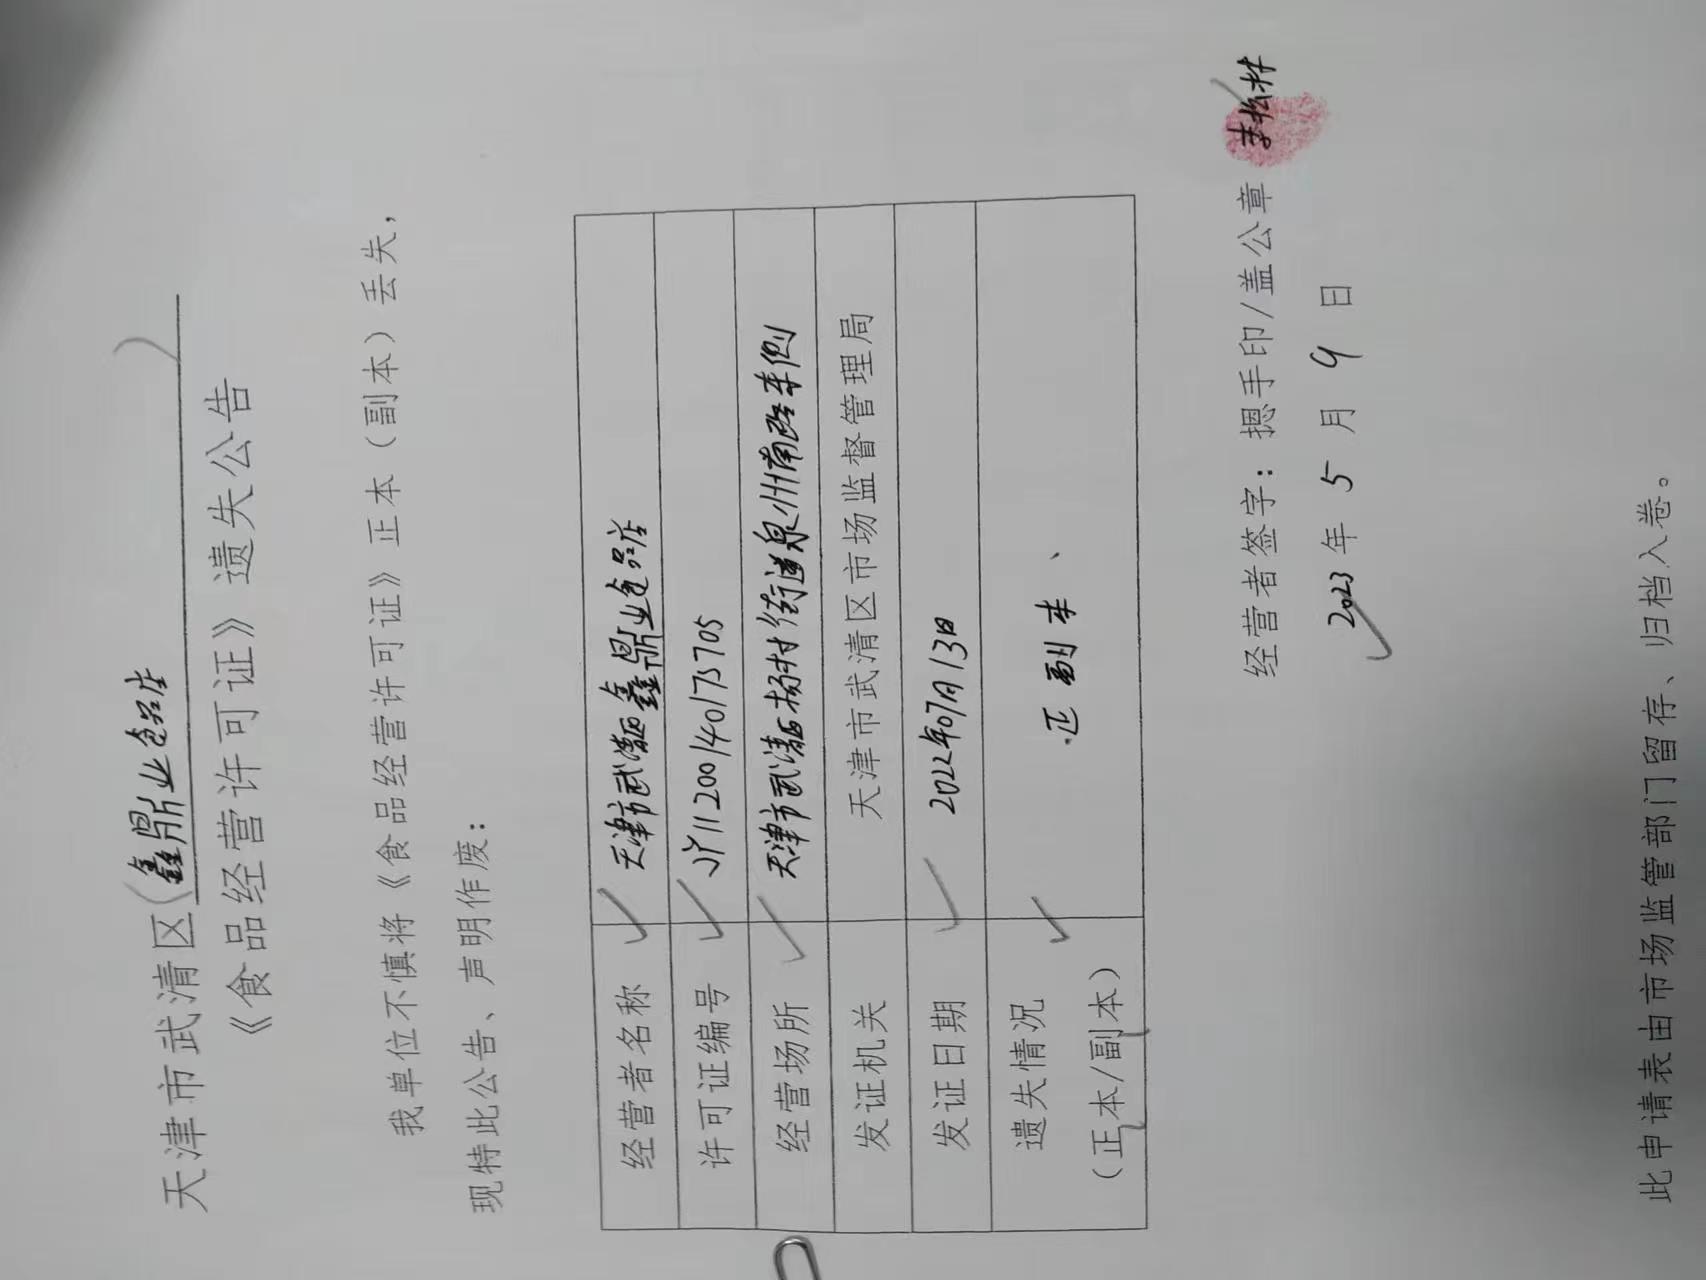 天津市武清区(鑫鼎业食品店)
《食品经营许可证》遗失公告
我单位不慎将《食品经营许可证》正本（副本）丢失，
现特此公告、声明作废：
经营者名称 天津市武清区鑫鼎业食品店
许可证编号 JY11200140173705
经营场所 天津市武清区杨村街道泉州南路东侧
发证机关 天津市武清区市场监督管理局
发证日期 2022年07月13日
遗失情况
（正本/副本） 正副本、
经营者签字：摁手印/盖公章
2023年5月9日
此申请表由市场监管部门留存、归档入卷。